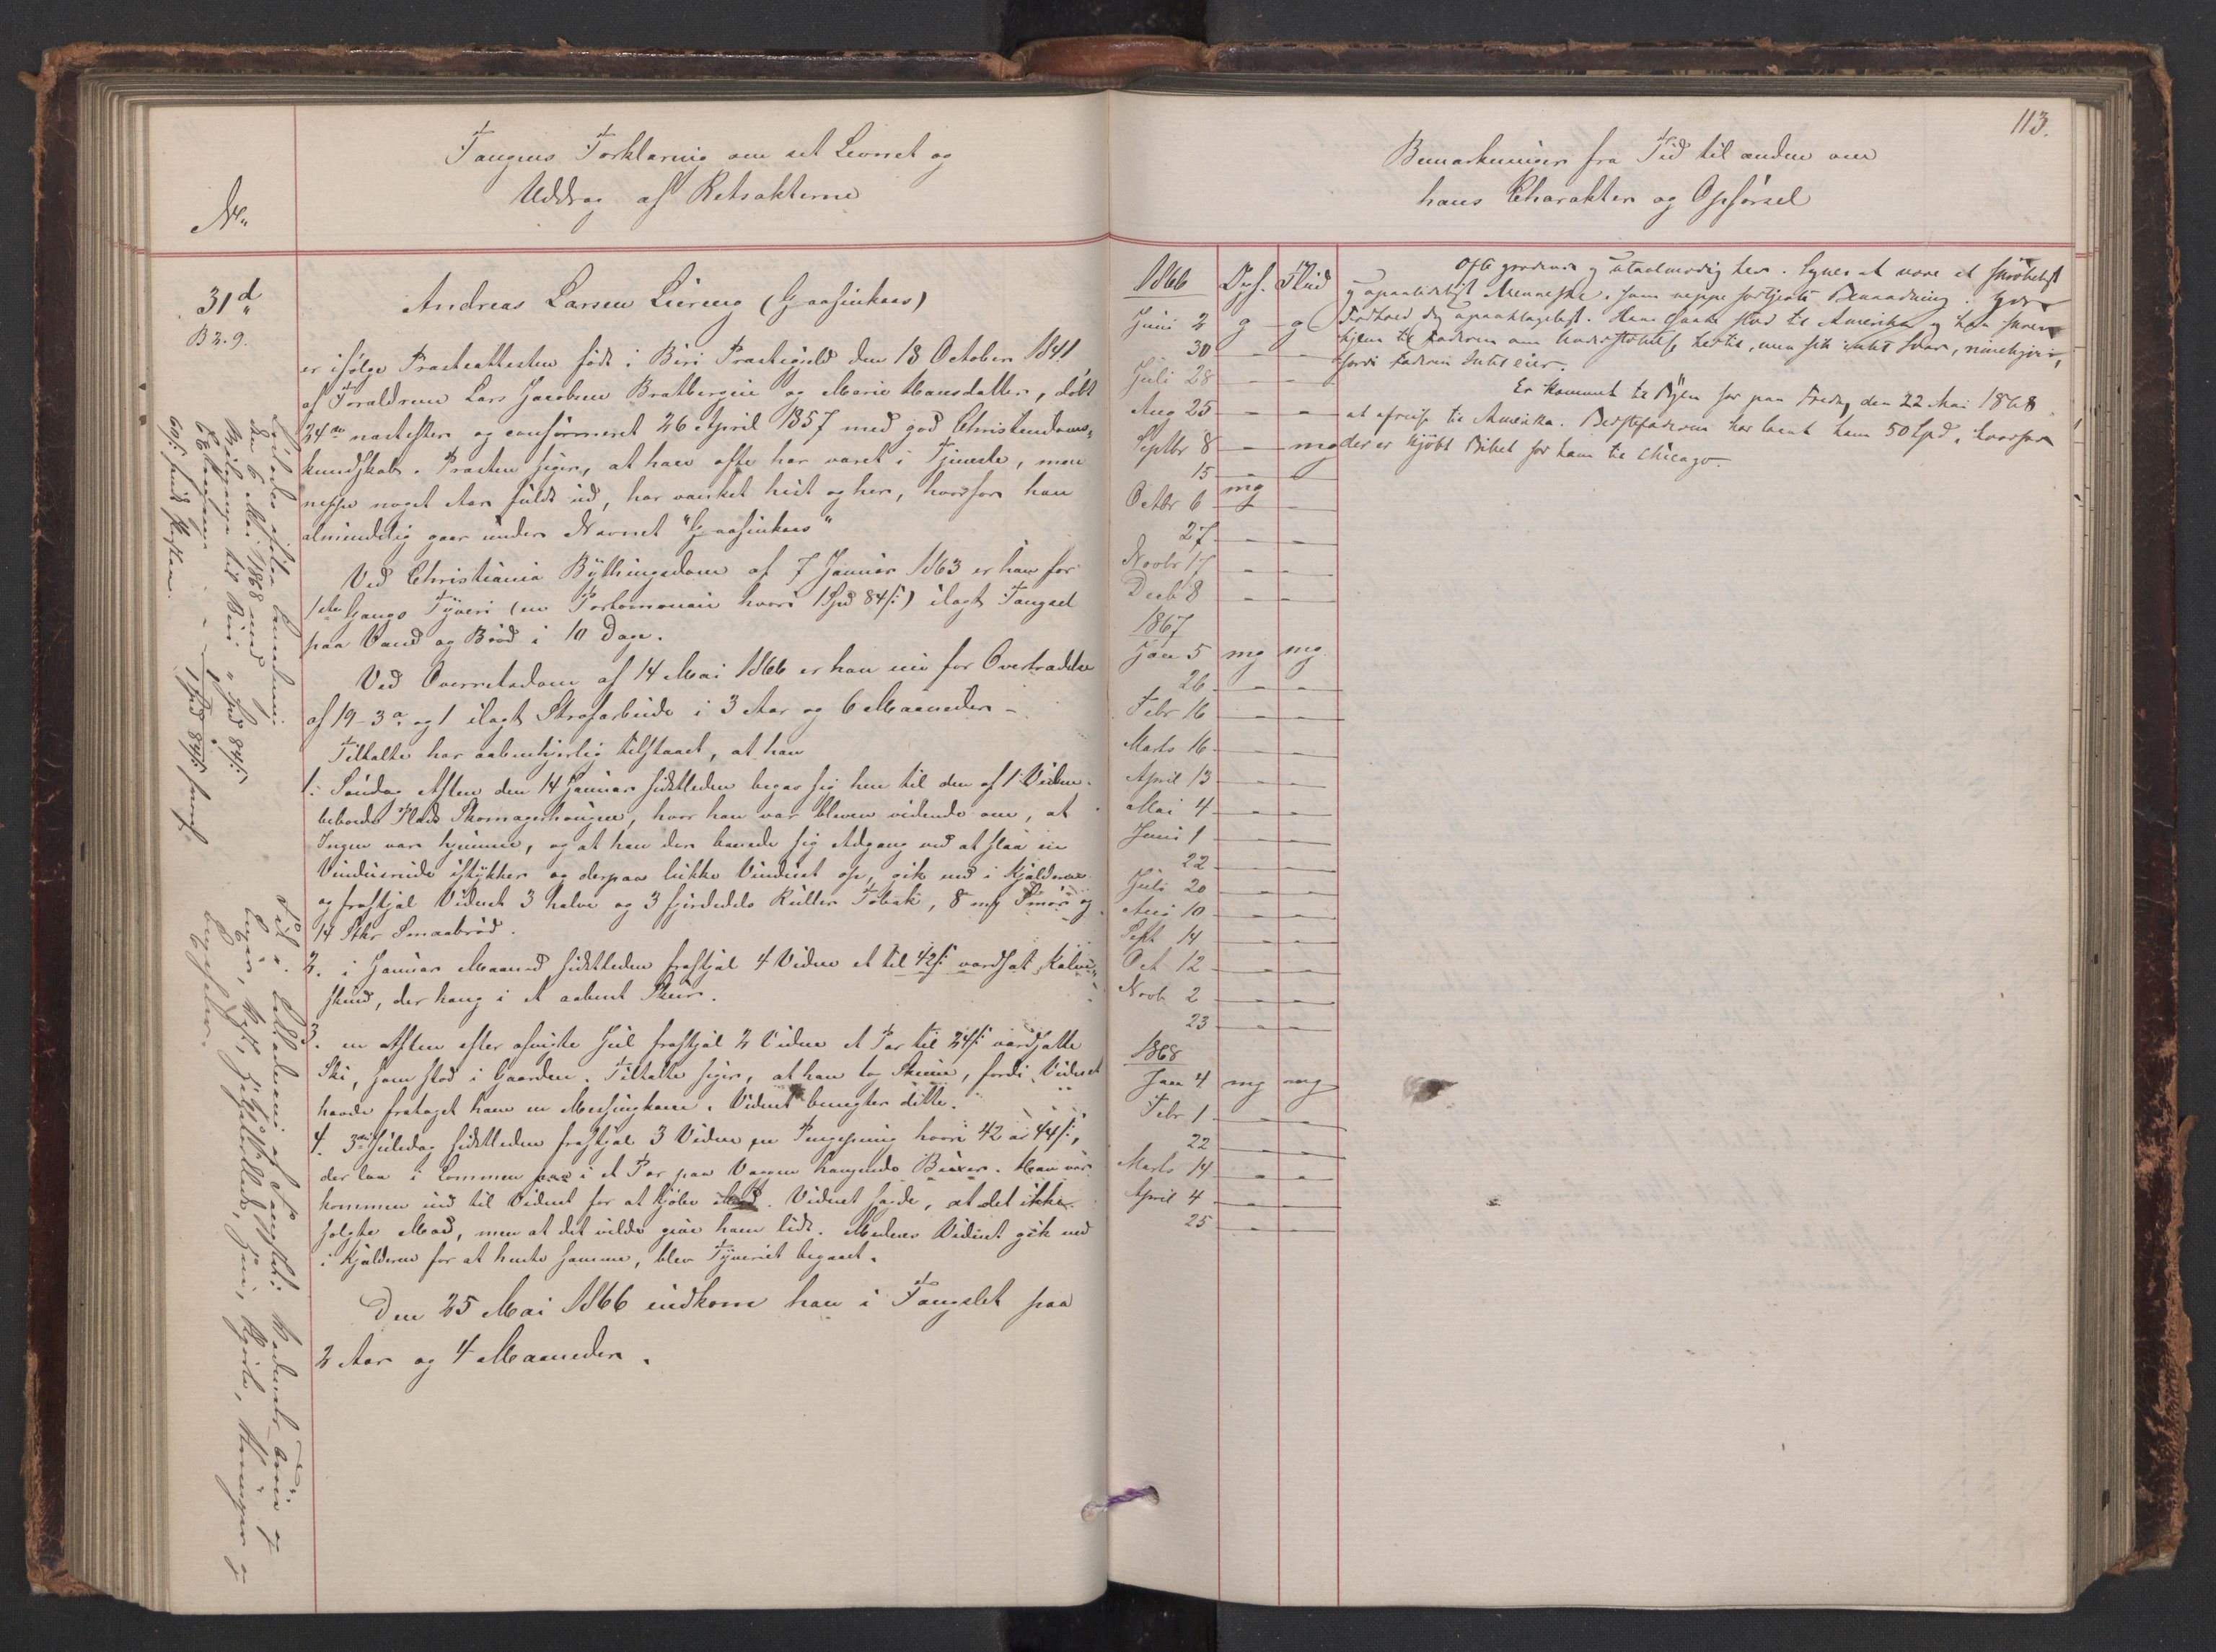 Fangens Forklaring om sit Levnet og
Uddrag af Retsakterne
No
31 d
B 2. 9.
Andreas Larsen Lureng (Graasinkaas)
er ifølge Præsteattesten født i Biri Præstegjeld den 18 October 1841
af Forældrene Lars Jacobsen Bratbergeie og Marie Hansdatter, døbt
24de næstefter og confirmeret 26 April 1857 med god Christendoms-
kundskab. Præsten siger, at han ofte har været i Tjeneste, men
neppe noget Aar fuldt ud, har vanket hist og her, hvorfor han
almindelig gaar under Navnet "Graasinkaas"
Ved Christiania Bythingsdom af 7 Januar 1863 er han for
1ste Gangs Tyveri (en Portemonaie hvori 1 Spd 84 s:) ilagt Fængsel
paa Vand og Brød i 10 Dage.
Ved Overretsdom af 14 Mai 1866 er han nu for Overtrædelse
af 19-3 a og 1 ilagt Strafarbeide i 3 Aar og 6 Maaneder -
Tiltalte har aabenhjertig tilstaaet, at han
1. Søndag Aften den 14 Januar sidstleden begav sig hen til den af 1 Vidne
beboede Plads Skomagerhaugen, hvor han var bleven vidende om, at
Ingen var hjemme, og at han der banede sig Adgang ved at slaa en
Vinduesrude istykker og derpaa lukke Vinduet op, gik ned i Kjælderen
og frastjal Vidnet 3 halve og 3 fjerdedels Ruller Tobak, 8 mk Smør og
14 Stkr Smaabrød.
2. i Januar Maaned sidstleden frastjal 4 Vidne et til 42 s: værdsat Kalve-
skind, der hang i et aabent Skur.
3. en Aften efter afvigte Juul frastjal 2 Vidne et Par til 24 s: værdsatte
Ski, som stod i Gaarden. Tiltalte siger, at han tog Skiene, fordi Vidnet
havde frataget ham en Messingkane. Vidnet benegter dette.
4. 3die Juledag sidstleden frastjal 3 Vidne en Pengepung hvori 42 a 44 s:,
der laa i Lommen paa i et Par paa Væggen hængende Buxer. Han var
kommen ind til Vidnet for at kjøbe Mad. Vidnet sagde, at det ikke
solgte Mad, men at det vilde give ham lidt. Medens Vidnet gik ned
i Kjælderen for at hente samme, blev Tyveriet begaaet.
Den 25 Mai 1866 indkom han i Fængslet paa
2 Aar og 4 Maaneder.
Løslades efter benaadning
den 6 Mai 1868 med
Reisepenge til Biri " Spd 84 s:
60 s: hvid Kasket.
113.
Bemærkninger fra Tid til anden om
hans Charakter og Opførsel
1866 Opf. Flid
Juni 2 g g
30 - -
Juli 28 - -
Aug 25 - -
Septbr 8 - mg
15 - -
Octbr 6 mg -
27 - -
Novbr 17 - -
Decb 8 - -
1867
Jan 5 mg mg
26 - -
Febr 16 - -
Marts 16 - -
April 13 - -
Mai 4 - -
Juni 1 - -
22 - -
Juli 20 - -
Aug 10 - -
Sept 14 - -
Oct 12 - -
Novb 2 - -
23 - -
1868
Jan 4 mg mg
Febr 1 - -
22 - -
Marts 14 - -
April 4 - -
25 - -
Ofte grædende og utaalmodig her. Synes at være et skrøbeligt
og upaalideligt Menneske, som neppe fortjente Benaadning.
Forhold dog upaaklageligt. Hans Hu stod til Amerika og han skrev
hjem til Faderen om Understøttelse hertil, men fik intet Svar,
fordi Faderen Intet eier.
Er kommet til Byen for paa Fredag den 22 Mai 1868
at afreise til Amerika. Bedstefaderen har laant ham 50 Spd, hvorfor
der er kjøbt Billet for ham til Chicago.